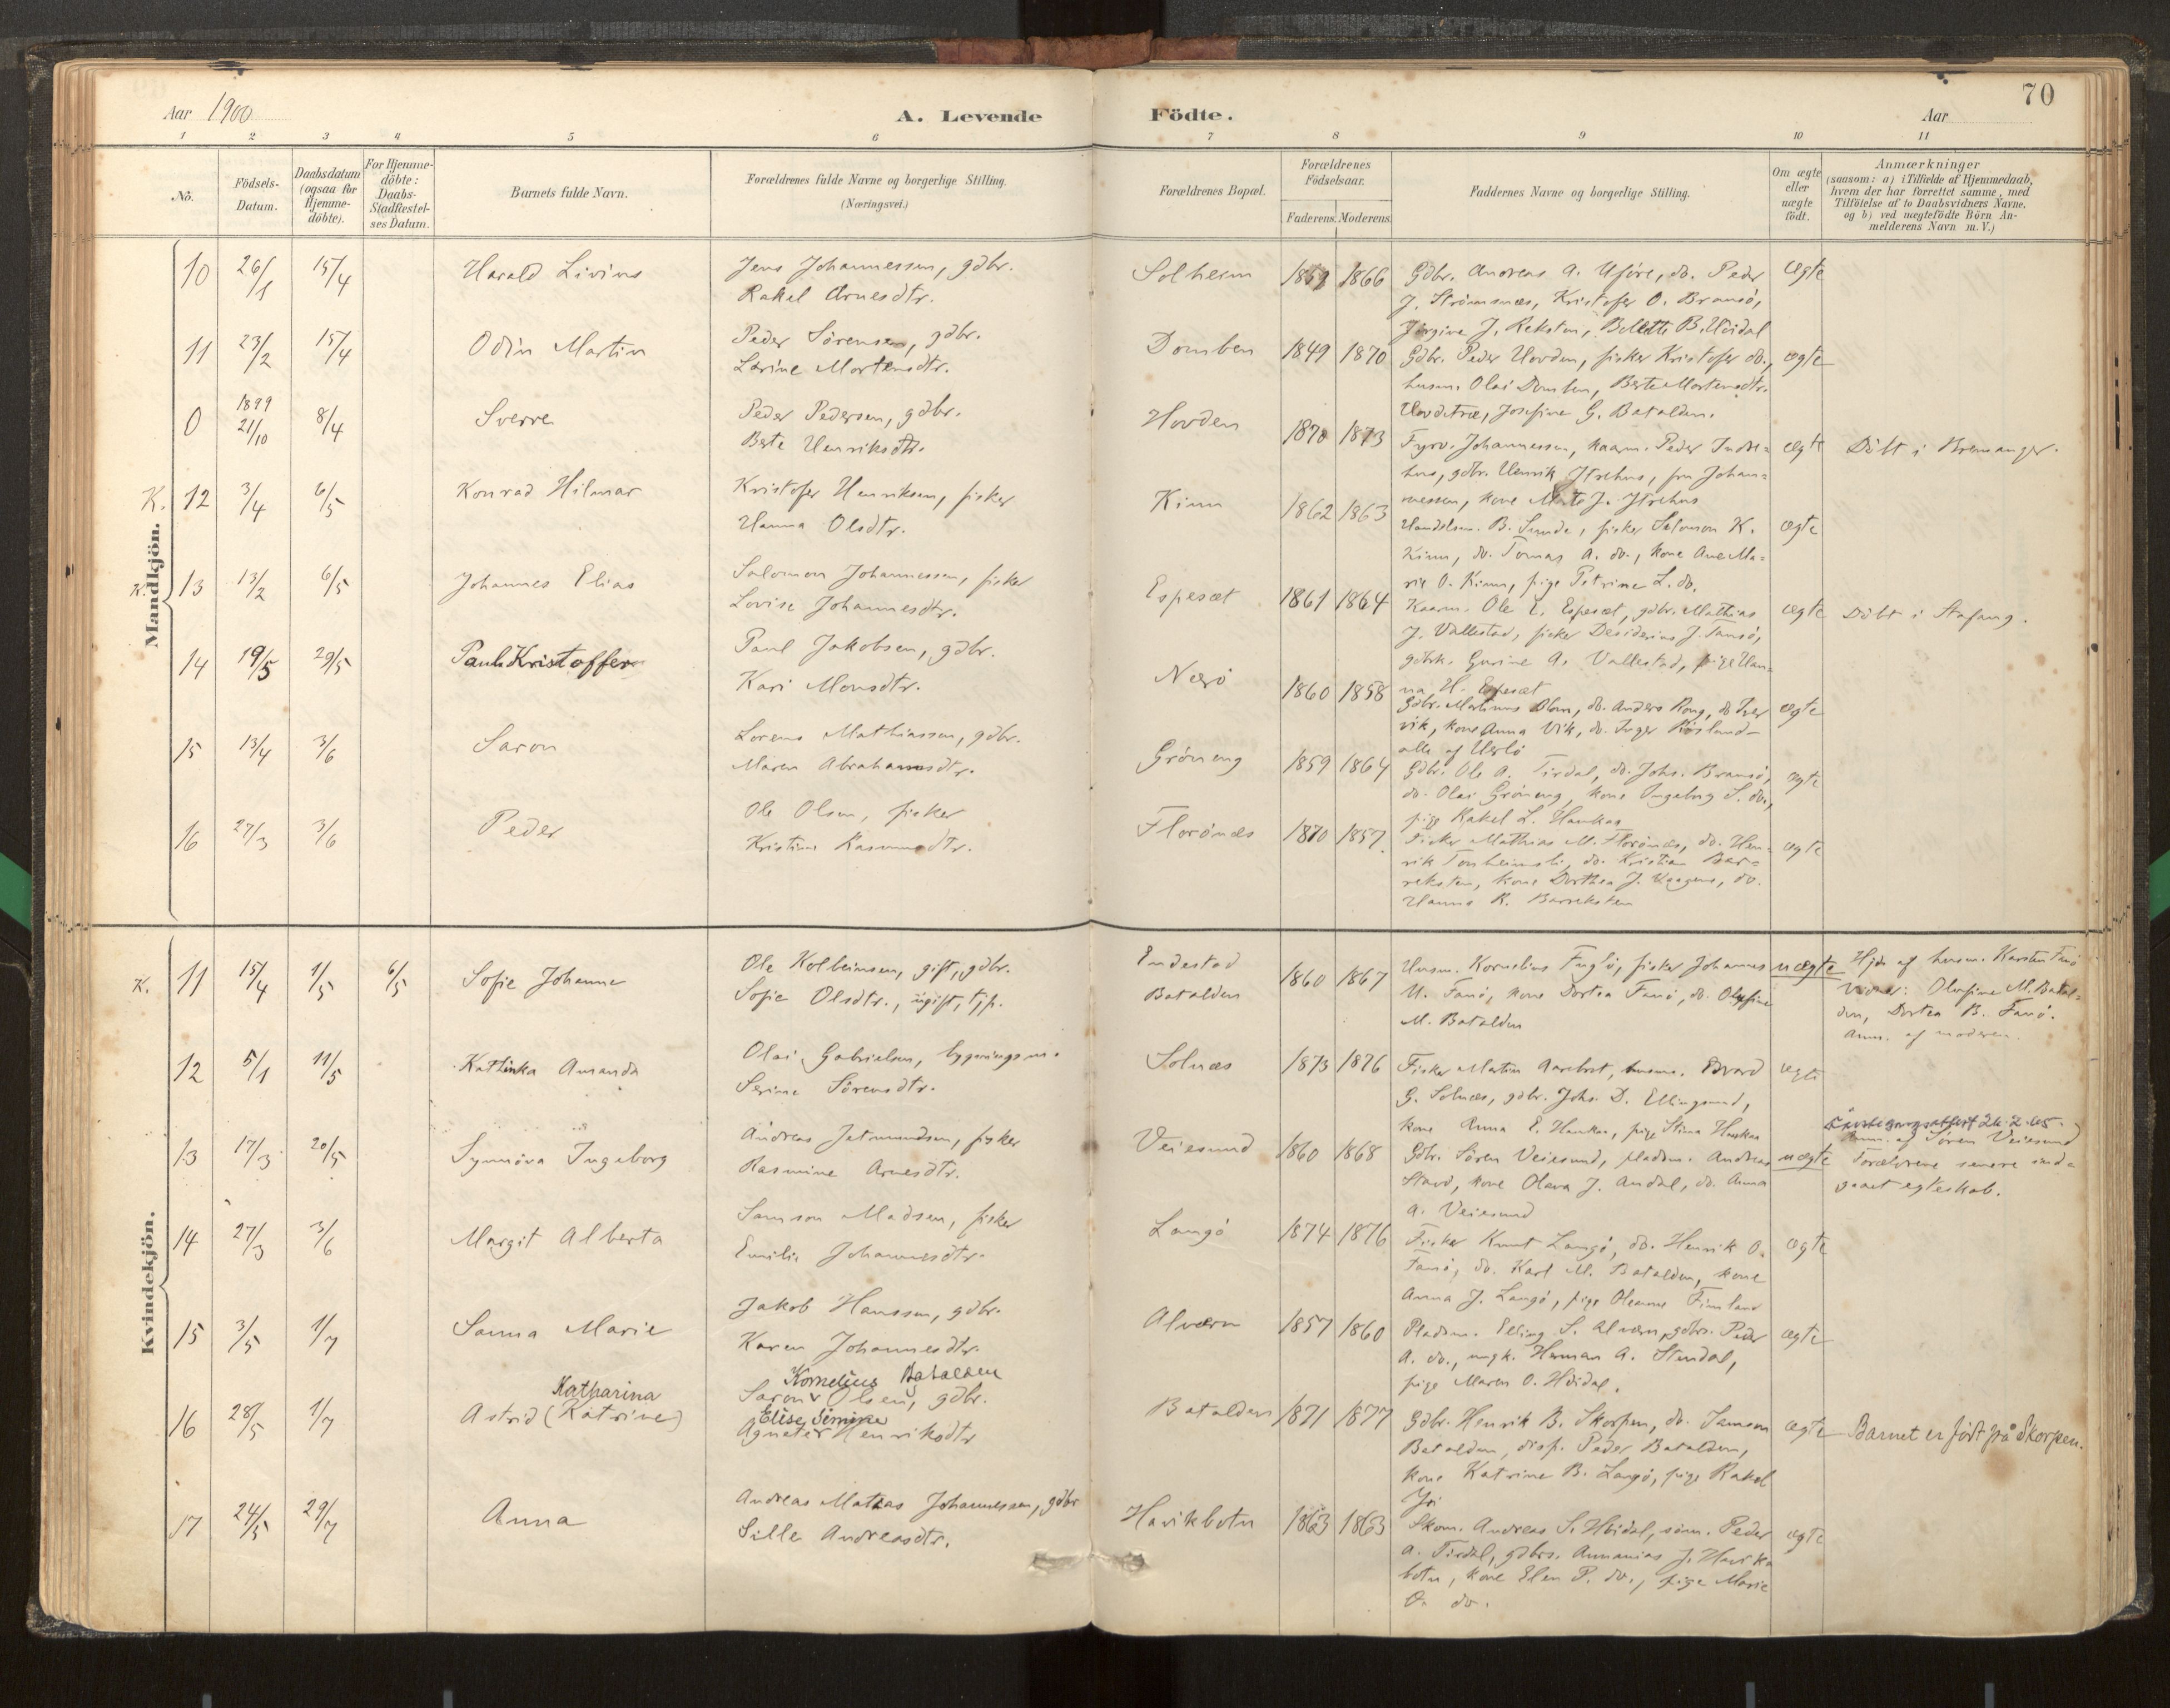 70
Aar 1900
A. Levende Födte.
Aar
1 2 3 4 5 6 7 8 9 10 11
No.
Födsels-Datum.
Daabsdatum (ogsaa for Hjemme-döbte).
For Hjemme-döbte: Daabs-Stadfæstel-ses Datum.
Barnets fulde Navn.
Forældrenes fulde Navne og borgerlige Stilling.
(Næringsvei.)
Forældrenes Bopæl.
Forældrenes Födselsaar.
Faderens. Moderens.
Faddernes Navne og borgerlige Stilling.
Om ægte eller uægte födt.
Anmærkninger
(saasom: a) i Tilfælde af Hjemmedaab,
hvem der har forrettet samme, med
Tilföielse af to Daabsvidners Navne,
og b) ved uægtefödte Börn An-
melderens Navn m. V.)
Mandkjön.
10 26/1 15/4 Harald Livius
Jens Johannessen, gdbr.
Rakel Arnesdtr.
Solheim 1859 1866
Gdbr. Andreas A. Uføre, do. Peder
J. Strømsnæs, Kristofer O. Bransö,
Jörgine J. Reksten, Bolette B. Hvidal
ægte
11 23/2 15/4 Odin Martin
Peder Sörensen, gdbr.
Larine Mortensdtr.
Domben 1849 1870
Gdbr. Peder Hovden, fisker Kristofer do.,
husm. Olai Domben, Berte Mortensdtr.
Josefine G. Batalden.
ægte
0 1899 21/10 8/4 Sverre
Peder Pedersen, gdbr.
Berte Henriksdtr.
Hovden 1870 1873
Fyrv. Johannessen, kaarm. Peder Indre-
hus, gdbr. Henrik Ytrehus, fru Johan-
nessen, kone J. Ytrehus
ægte
Döbt i Bremanger.
K. 12 3/4 6/5 Konrad Hilmar
Kristofer Henriksen, fisker
Hanna Olsdtr.
Kinn 1862 1863
Handelsm. B. Sunde, fisker Salomon K.
Kinn, do. Tomas A. do., kone Ane Ma-
rie O. Kinn, pige Petrine L. do.
ægte
K. 13 13/2 6/5 Johannes Elias
Salomon Johannessen, fisker
Lovise Johannesdtr.
Espesæt 1861 1864
Kaarm. Ole E. Espesæt, gdbr. Mathias
J. Vallestad, fisker Desiderius J. Tansö,
gdbrk. Gurine A. Vallestad, pige Han-
na H. Espesæt
ægte
Döbt i Stafang.
14 19/5 29/5 Paul Kristoffer
Paul Jakobsen, gdbr.
Kari Monsdtr.
Nærö 1860 1858
Gdbr. Martinus Blom, do. Anders Rong, do. Iver
Vik, kone Anna Vik, do. Inger Røsland -
alle af Herlö
ægte
15 13/4 3/6 Saron
Lorens Mathiassen, gdbr.
Maren Abrahamsdtr.
Gröneng 1859 1864
Gdbr. Ole A. Tirdal, do. Johs. Bransö,
do. Olai Gröneng, kone Ingeborg S. do.,
pige Rakel L. Haukaa
ægte
16 27/3 3/6 Peder
Ole Olsen, fisker
Kristine Rasmusdtr.
Florönæs 1870 1857
Fisker Mathias M. Florönæs, do. Hen-
rik Tonheimsli, do. Kristian Bar-
reksten, kone Dorthea J. Vaagene, do.
Hanna R. Barreksten
ægte
Kvindekjön.
K. 11 15/4 1/5 6/5 Sofie Johanne
Ole Kolbeinsen, gift, gdbr.
Sofie Olsdtr., ugift, tjp.
Endestad
Batalden
1860 1867
Husm. Kornelius Fuglö, fisker Johannes
H. Fanö, kone Dortea Fanö, do. Olufine
M. Batalden
uægte
Hjd. af husm. Karsten Fanö
Vidner: Olufine M. Batal-
den, Dortea B. Fanö.
Anm. af moderen.
12 5/1 11/5 Kathinka Amanda
Olai Gabrielsen, bygningsm.
Serine Sörensdtr.
Solnæs 1873 1876
Fisker Martin Aarebrot, husm. Edvard
G. Solnæs, gdbr. Johs. D. Ellingsund,
kone Anna E. Haukaa, pige Stina Haukaa
ægte
13 17/3 20/5 Synnöva Ingeborg
Andreas Jetmundsen, fisker
Rasmine Arnesdtr.
Veiesund 1860 1868
Gdbr. Sören Veiesund, pladsm. Andreas
Stavö, kone Olava J. Andal, do. Anna
A. Veiesund
uægte
Anm. af Sören Veiesund
Forældrene senere ind-
gaaet egteskab.
14 27/3 3/6 Margit Alberta
Samson Madsen, fisker
Emilie Johannesdtr.
Langö 1874 1876
Fisker Knut Langö, do. Henrik O.
Fanö, do. Karl M. Batalden, kone
Anna J. Langö, pige Oleanne Fimland
ægte
15 3/5 1/7 Sanna Marie
Jakob Hanssen, gdbr.
Karen Johannesdtr.
Alværn 1857 1860
Pladsm. Elling S. Alværn, gdbrs. Peder
A. do., ungk. Herman A. Stendal,
pige Maren O. Hvidal.
ægte
16 28/5 1/7 Katharina
Astrid (Katrine)
Kornelius Batalden
Saron Olsen, gdbr.
Elise Simine
Agnete Henriksdtr
Batalden 1871 1877
Gdbr. Henrik B. Skorpen, do. Samson
Batalden, disp. Peder Batalden,
kone Katrine B. Langö, pige Rakel
Yri
ægte
Barnet er födt på Skorpen.
17 24/5 29/7 Anna
Andreas Matias Johannessen, gdbr
Sille Andreasdtr.
Havikbotn 1863 1863
Skom. Andreas S. Hvidal, söm. Peder
A. Tirdal, gdbrs. Annanias J. Havik-
botn, kone Elen P. do., pige Marie
O. do.
ægte